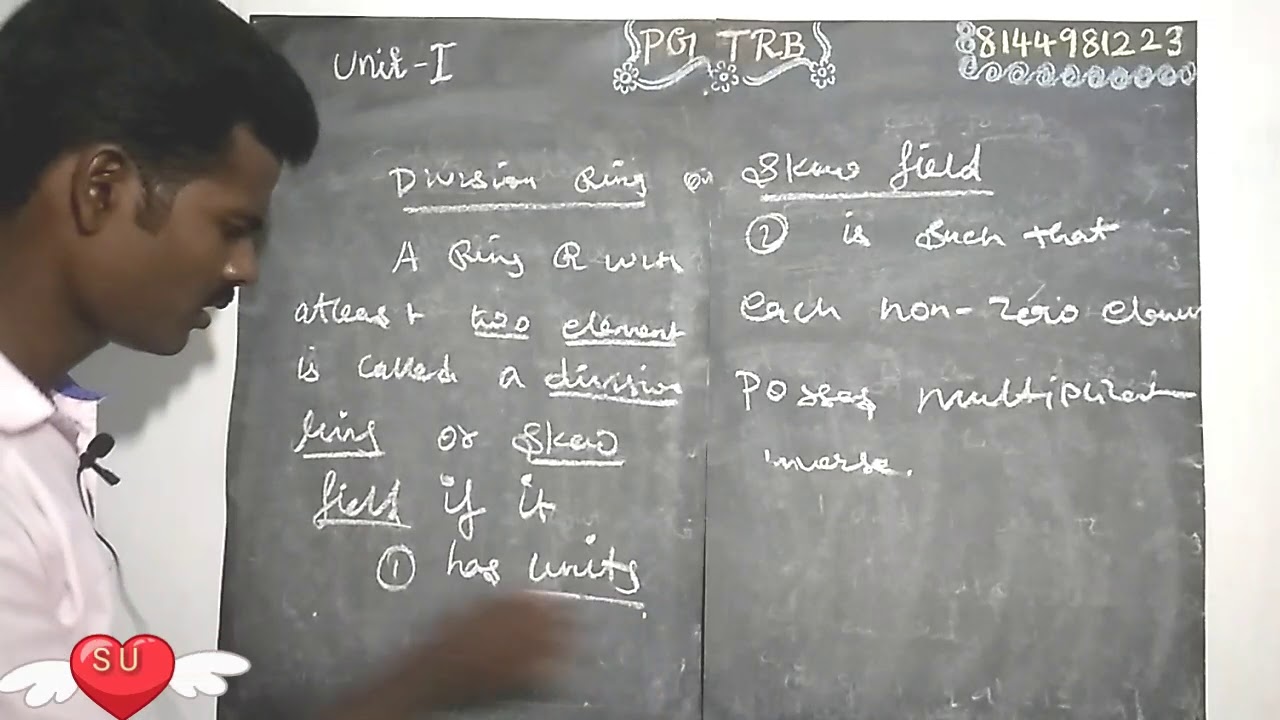 Unit-I
PG TRB
8144981223
Division Ring or Skew field
A Ring R with
atleast two element
is called a division
ring or Skew
field if it
① has units
② is such that
each non-zero
Posses
inverse.
SU